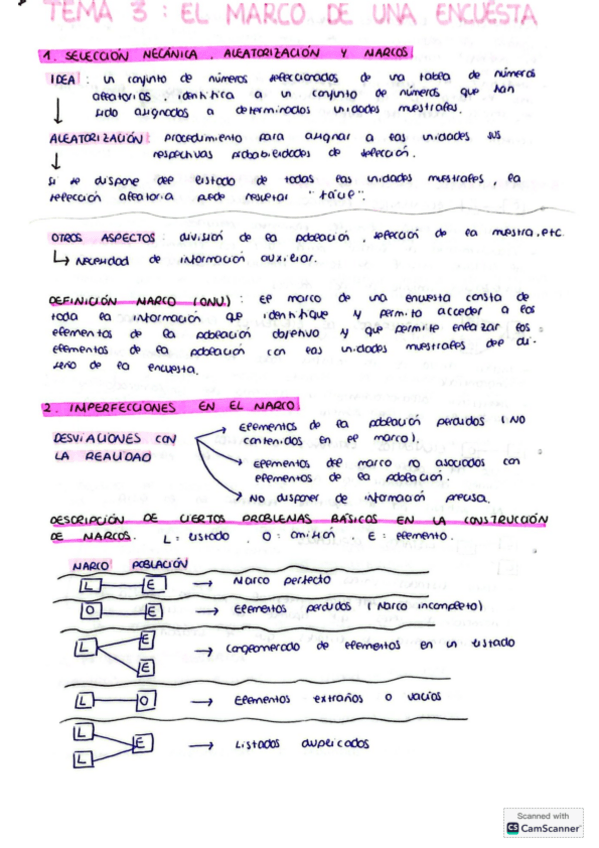 TEMA 3 : EL MARCO DE UNA ENCUESTA
1. SELECCIÓN MECÁNICA, ALEATORIZACIÓN Y MARCOS.
IDEA : un conjunto de números seleccionados de una tabla de números
aleatorios, identifica a un conjunto de números que han
sido asignados a determinadas unidades muestrales.
ALEATORIZACIÓN procedimiento para asignar a las unidades sus
respectivas probabilidades de selección.
Si se dispone del listado de todas las unidades muestrales, la
selección aleatoria puede resultar "fácil".
OTROS ASPECTOS : división de la población, selección de la muestra, etc.
↳ Necesidad de información auxiliar.
DEFINICIÓN MARCO (ONU.) : El marco de una encuesta consta de
toda la información que identifique y permita acceder a los
elementos de la población objetivo y que permite enlazar los
elementos de la población con las unidades muestrales del di-
seño de la encuesta.
2. IMPERFECCIONES EN EL MARCO.
DESVIACIONES CON
LA REALIDAD
Elementos de la población perdidos (NO
contenidos en el marco).
Elementos del marco no asociados con
elementos de la población.
NO disponer de información precisa.
DESCRIPCIÓN DE CIERTOS PROBLEMAS BÁSICOS EN LA CONSTRUCCIÓN
DE MARCOS. L : Listado . O : omisión . E : elemento.
MARCO POBLACIÓN
L E → Marco perfecto
O E → Elementos perdidos (Marco incompleto)
L E E → Conglomerado de elementos en un listado
L O → Elementos extraños o vacíos
L L E → Listados duplicados
Scanned with
CS CamScanner